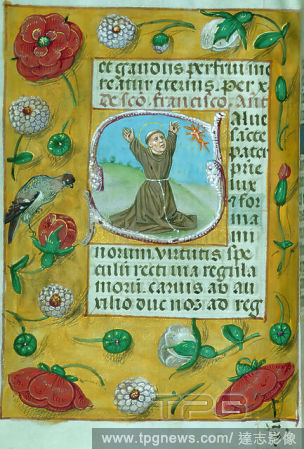 et gaudiis perfrui me
reatur eternis. Per x
De sco francisco. Ant
alue
sancte
pater
prie
lux
forma
morum. virtutis spe
culum recti via regula
morum. carnis ab
exilio duc nos ad reg
TPG
www.tpgnews.com/達志影像